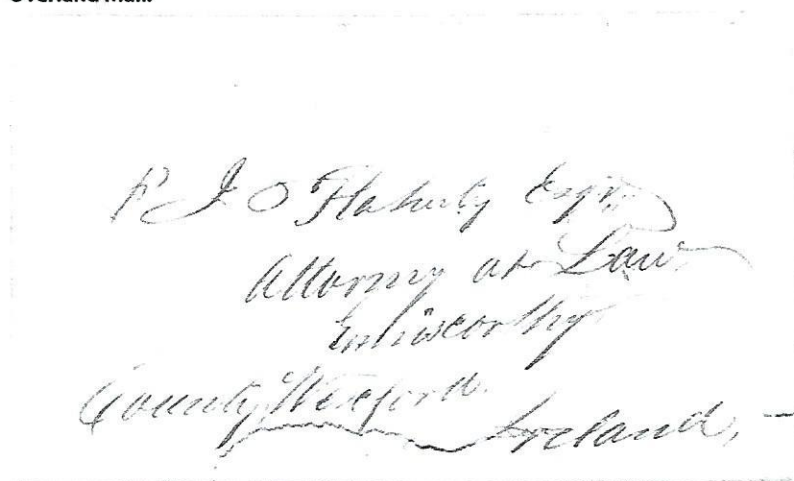 Overland Mail
P J O Flaherty Esqr,
Attorney at Law
Enniscorthy
County Wexford.
Ireland, —